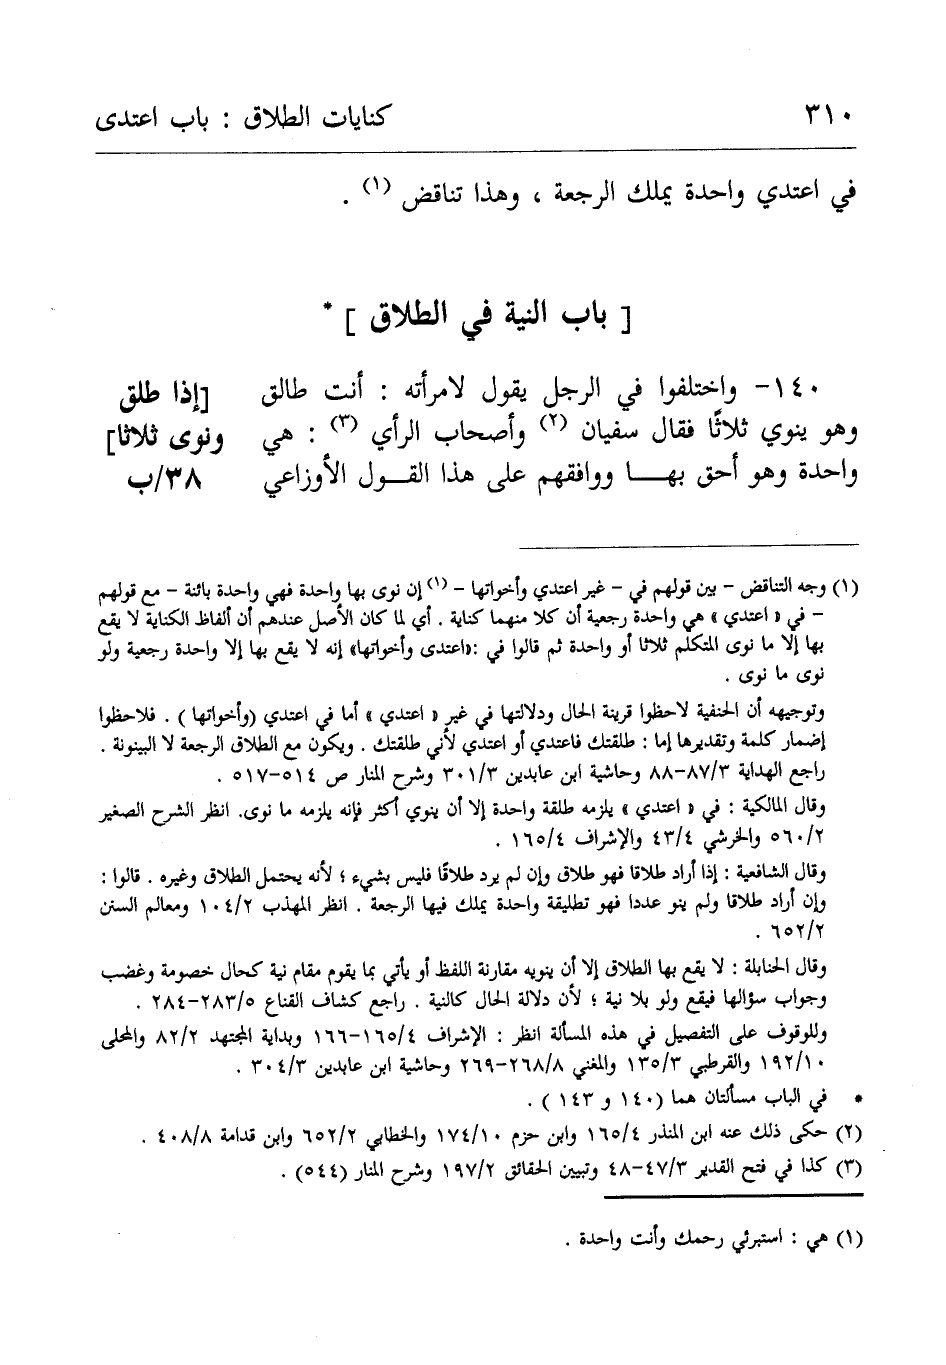 ٣١٠ كنايات الطلاق : باب اعتدى
في اعتدي واحدة يملك الرجعة ، وهذا تناقض (١) .
[ باب النية في الطلاق ] *
١٤٠- واختلفوا في الرجل يقول لامرأته : أنت طالق [إذا طلق
وهو ينوي ثلاثًا فقال سفيان (٢) وأصحاب الرأي (٣) : هي ونوى ثلاثا]
واحدة وهو أحق بهـــا ووافقهم على هذا القـــول الأوزاعي ٣٨/ب
(١) وجه التناقض - بين قولهم في - غير اعتدي وأخواتها - (١) إن نوى بها واحدة فهي واحدة بائنة - مع قولهم
- في « اعتدي » هي واحدة رجعية أن كلا منهما كناية . أي لما كان الأصل عندهم أن ألفاظ الكناية لا يقع
بها إلا ما نوى المتكلم ثلاثا أو واحدة ثم قالوا في :«اعتدى وأخواتها» إنه لا يقع بها إلا واحدة رجعية ولو
نوى ما نوى .
وتوجيهه أن الحنفية لاحظوا قرينة الحال ودلالتها في غير « اعتدي » أما في اعتدي (وأخواتها ) . فلاحظوا
إضمار كلمة وتقديرها إما : طلقتك فاعتدي أو اعتدي لأني طلقتك . ويكون مع الطلاق الرجعة لا البينونة .
راجع الهداية ٨٧/٣-٨٨ وحاشية ابن عابدين ٣٠١/٣ وشرح المنار ص ٥١٤-٥١٧ .
وقال المالكية : في « اعتدي » يلزمه طلقة واحدة إلا أن ينوي أكثر فإنه يلزمه ما نوى. انظر الشرح الصغير
٥٦٠/٢ والخرشي ٤٣/٤ والإشراف ١٦٥/٤ .
وقال الشافعية : إذا أراد طلاقا فهو طلاق وإن لم يرد طلاقًا فليس بشيء ؛ لأنه يحتمل الطلاق وغيره . قالوا :
وإن أراد طلاقا ولم ينو عددا فهو تطليقة واحدة يملك فيها الرجعة . انظر المهذب ١٠٤/٢ ومعالم السنن
٦٥٢/٢ .
وقال الحنابلة : لا يقع بها الطلاق إلا أن ينويه مقارنة اللفظ أو يأتي بما يقوم مقام نية كحال خصومة وغضب
وجواب سؤالها فيقع ولو بلا نية ؛ لأن دلالة الحال كالنية . راجع كشاف القناع ٢٨٣/٥-٢٨٤ .
وللوقوف على التفصيل في هذه المسألة انظر : الإشراف ١٦٥/٤-١٦٦ وبداية المجتهد ٨٢/٢ والمحلى
١٩٢/١٠ والقرطبي ١٣٥/٣ والمغني ٢٦٨/٨-٢٦٩ وحاشية ابن عابدين ٣٠٤/٣ .
* في الباب مسألتان هما (١٤٠ و ١٤٣ ) .
(٢) حكى ذلك عنه ابن المنذر ١٦٥/٤ وابن حزم ١٧٤/١٠ والخطابي ٦٥٢/٢ وابن قدامة ٤٠٨/٨ .
(٣) كذا في فتح القدير ٤٧/٣-٤٨ وتبيين الحقائق ١٩٧/٢ وشرح المنار (٥٤٤) .
(١) هي : استبرئي رحمك وأنت واحدة .